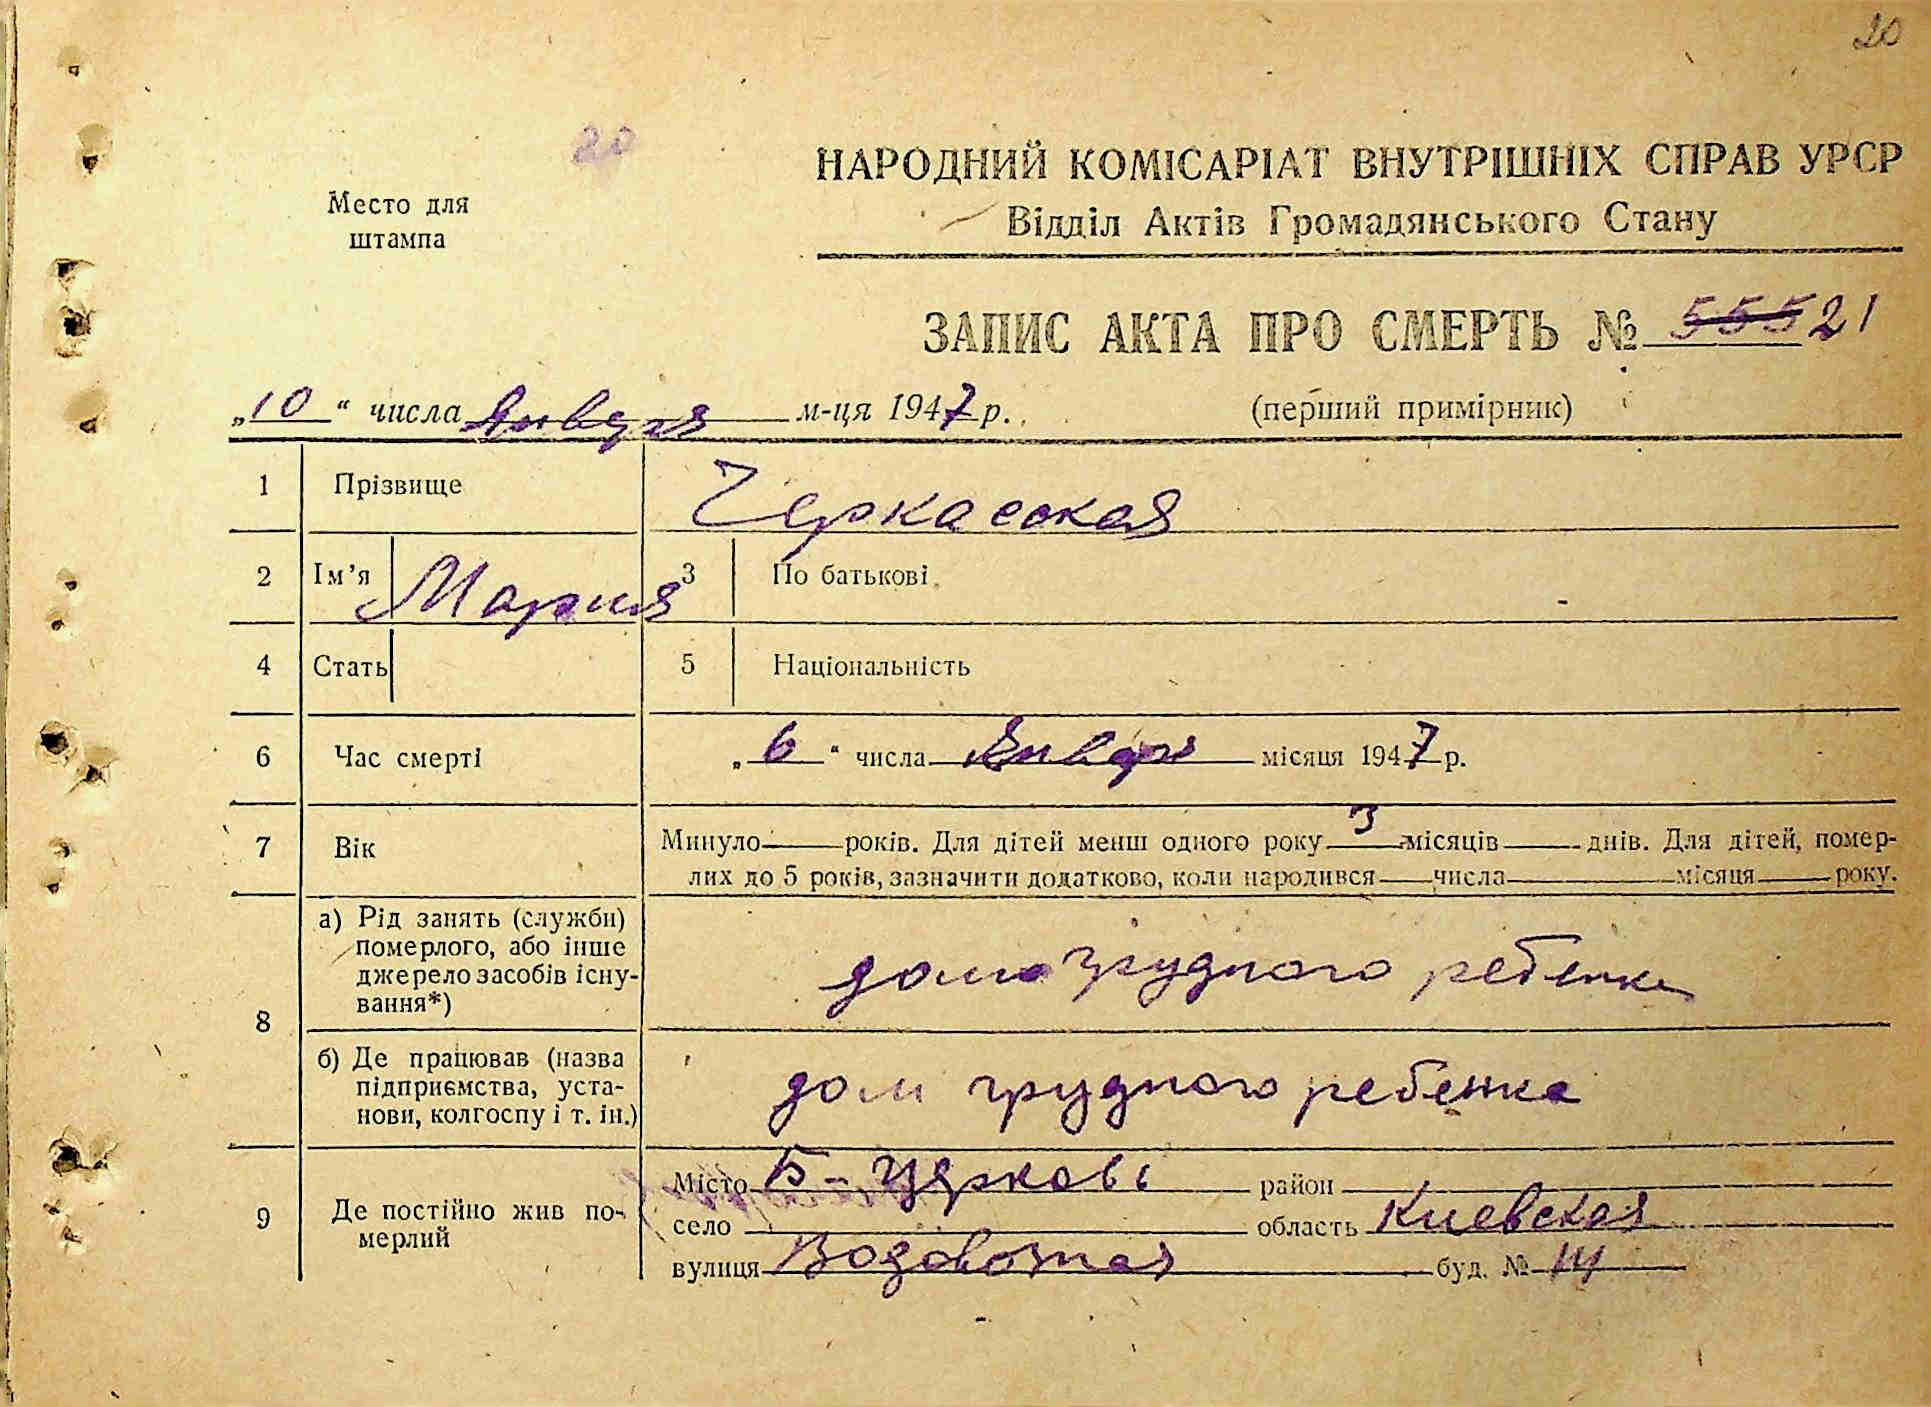 20
20
Место для
штампа
НАРОДНИЙ КОМІСАРІАТ ВНУТРІШНІХ СПРАВ УРСР
Відділ Актів Громадянського Стану
ЗАПИС АКТА ПРО СМЕРТЬ № 555 21
„10“ числа Января м-ця 1947 р. (перший примірник)
1 Прізвище Черкасская
2 Ім’я Мария 3 По батькові
4 Стать 5 Національність
6 Час смерті „6“ числа Января місяця 1947 р.
7 Вік Минуло — років. Для дітей менш одного року 3 місяців — днів. Для дітей, помер-
лих до 5 років, зазначити додатково, коли народився — числа — місяця — року.
8 а) Рід занять (служби)
померлого, або інше
джерело засобів існу-
вання*)
дома грудного ребенка
б) Де працював (назва
підприємства, уста-
нови, колгоспу і т. ін.)
дом грудного ребенка
9 Де постійно жив по-
мерлий
Місто Б-Церковь район
село область Киевская
вулиця буд. №